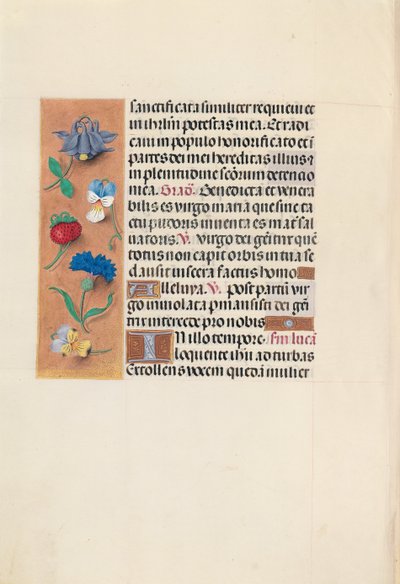 sanctificata similiter requieui et
in ihrl̄m potestas mea. Et radi
caui in populo honorificato et ī
partes dei mei hereditas illius ⁊
in plenitudine sc̄orum detencio
mea. Grad̄. Benedicta et venera
bilis es virgo maria que sine ta
ctu pudoris inuenta es mat̄ sal
uatoris. V̄. Virgo dei geīt̄rix quē
totus non capit orbis in tua se
clausit uiscera factus homo
Alleluya. V̄. post partū vir
go inuiolata pmansisti dei geī
trix intercede pro nobis
IN illo tempore. sm̄ lucā
loquente ihū ad turbas
Extollens vocem quedā mulier